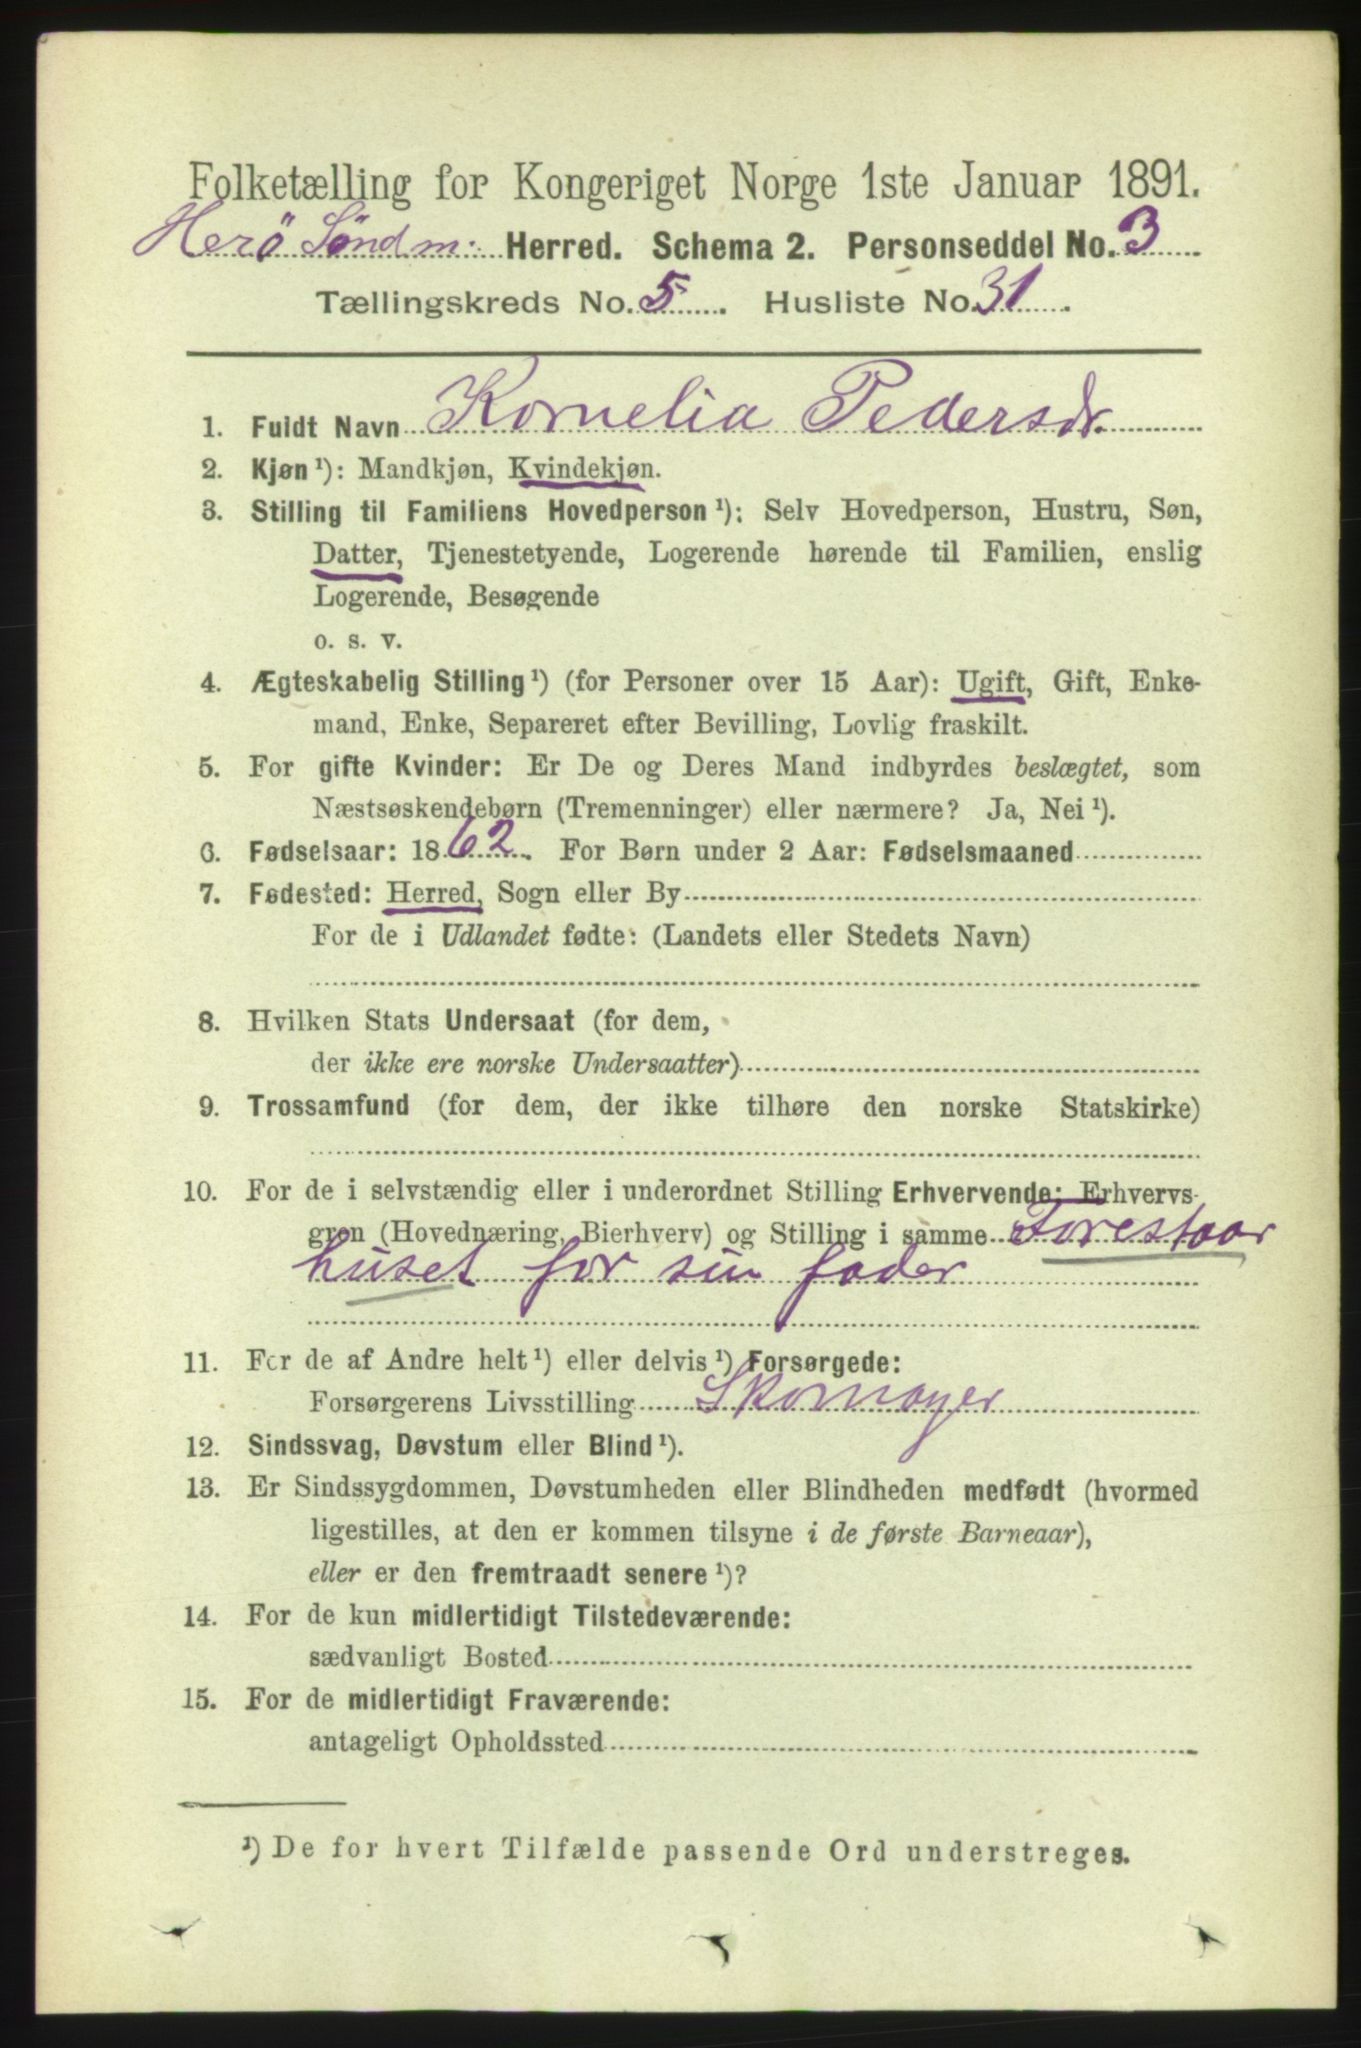 Folketælling for Kongeriget Norge 1ste Januar 1891.
Herö Söndm: Herred. Schema 2. Personseddel No. 3
Tællingskreds No. 5. Husliste No. 31.
1. Fuldt Navn Kornelia Pedersdr.
2. Kjøn ¹): Mandkjøn, Kvindekjøn.
3. Stilling til Familiens Hovedperson ¹): Selv Hovedperson, Hustru, Søn,
Datter, Tjenestetyende, Logerende hørende til Familien, enslig
Logerende, Besøgende
o. s. v.
4. Ægteskabelig Stilling ¹) (for Personer over 15 Aar): Ugift, Gift, Enke-
mand, Enke, Separeret efter Bevilling, Lovlig fraskilt.
5. For gifte Kvinder: Er De og Deres Mand indbyrdes beslægtet, som
Næstsøskendebørn (Tremenninger) eller nærmere? Ja, Nei ¹).
6. Fødselsaar: 1862. For Børn under 2 Aar: Fødselsmaaned
7. Fødested: Herred, Sogn eller By
For de i Udlandet fødte: (Landets eller Stedets Navn)
8. Hvilken Stats Undersaat (for dem,
der ikke ere norske Undersaatter)
9. Trossamfund (for dem, der ikke tilhøre den norske Statskirke)
10. For de i selvstændig eller i underordnet Stilling Erhvervende: Erhvervs-
gren (Hovednæring, Bierhverv) og Stilling i samme Forestaar
huset for sin fader
11. For de af Andre helt ¹) eller delvis ¹) Forsørgede:
Forsørgerens Livsstilling Skomager
12. Sindssvag, Døvstum eller Blind ¹).
13. Er Sindssygdommen, Døvstumheden eller Blindheden medfødt (hvormed
ligestilles, at den er kommen tilsyne i de første Barneaar),
eller er den fremtraadt senere ¹)?
14. For de kun midlertidigt Tilstedeværende:
sædvanligt Bosted
15. For de midlertidigt Fraværende:
antageligt Opholdssted
¹) De for hvert Tilfælde passende Ord understreges.